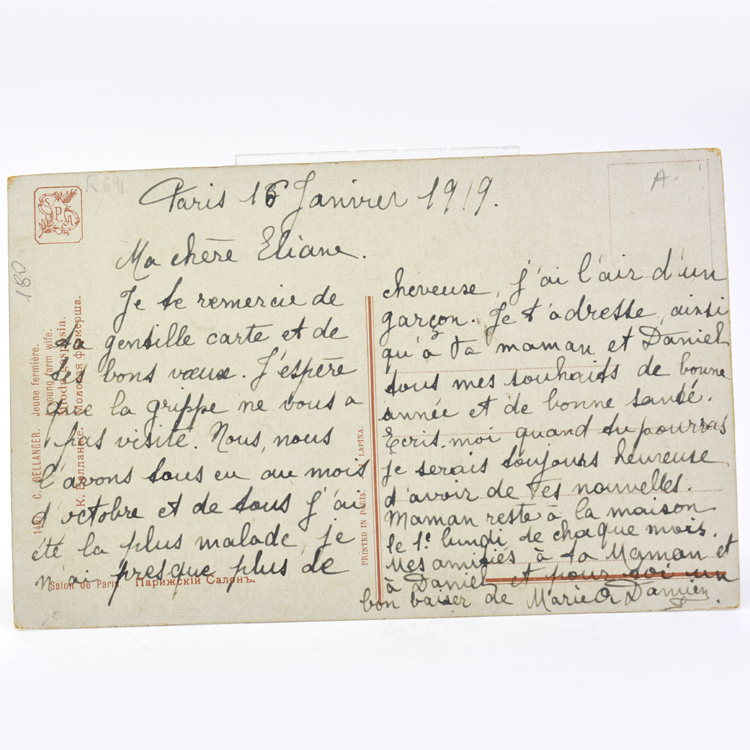 Paris 16 Janvier 1919.
Ma chère Eliane.
Je te remercie de
ta gentille carte et de
tes bons vœux. J'espère
que la grippe ne vous a
pas visité. Nous, nous
l'avons tous eu au mois
d'octobre et de tous j'ai
été la plus malade, je
n'ai presque plus de
cheveuse, j'ai l'air d'un
garçon. Je t'adresse, ainsi
qu'à ta maman et Daniel
tous mes souhaits de bonne
année et de bonne santé.
Ecris-moi quand tu pourras
je serais toujours heureuse
d'avoir de tes nouvelles.
Maman reste à la maison
le 1e lundi de chaque mois.
Mes amitiés à ta Maman et
à Daniel et pour toi un
bon baiser de Marie Damien.
180
A.
C. BELLANGER. Jeune fermière.
Young farm wife.
К. Белланже. Молодая фермерша.
PRINTED IN PARIS. LAPINA.
Salon de Paris. Парижскій Салонъ.